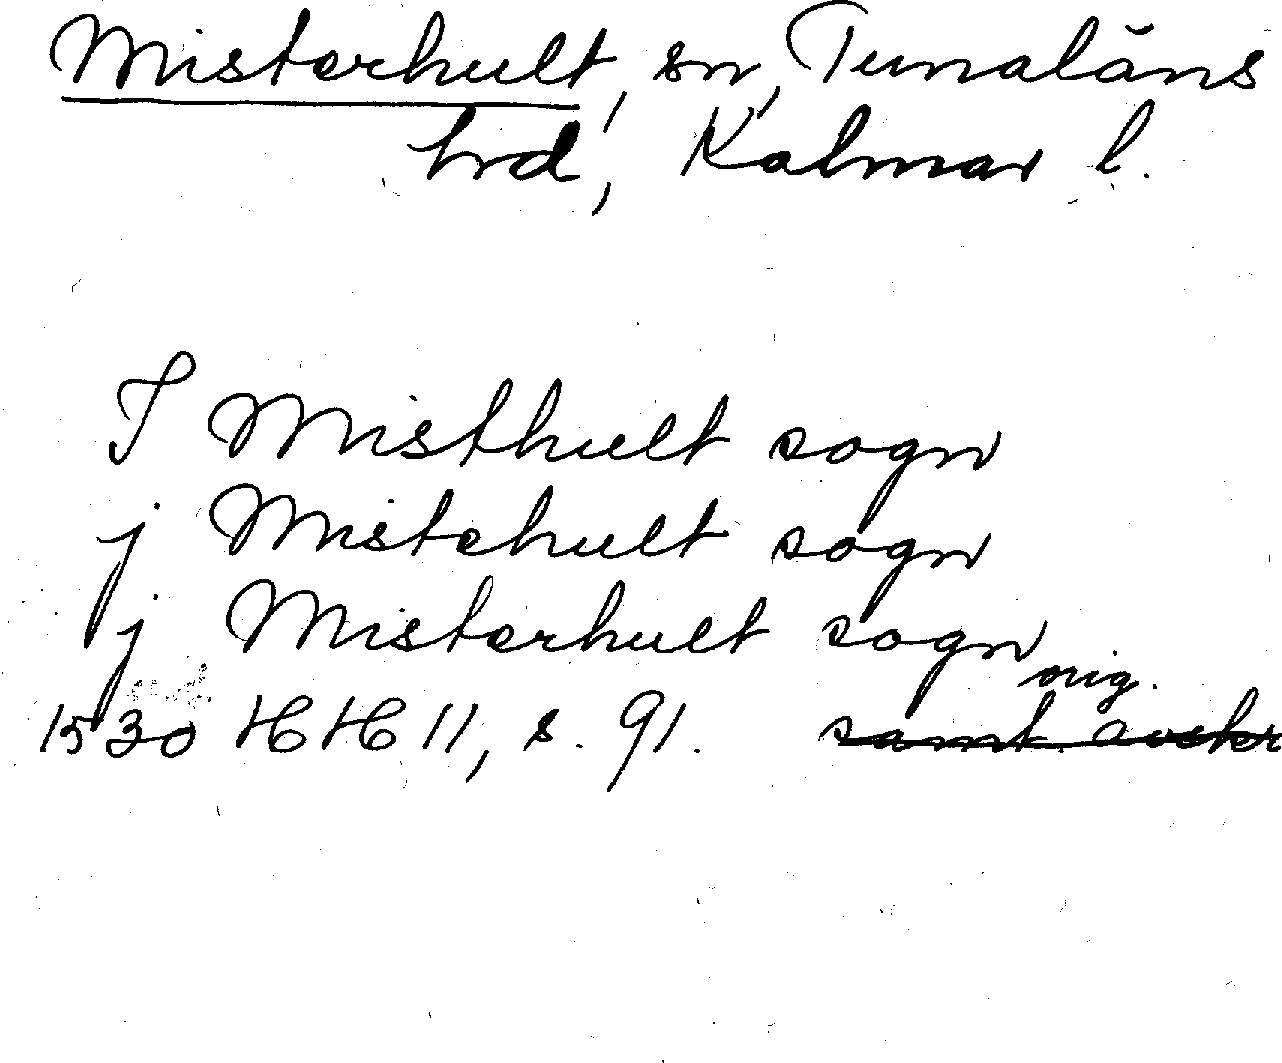 Misterhult, sn, Tunaläns
hrd, Kalmar l.
I Misthult sogn
j Mistehult sogn
j Misterhult sogn
orig.
1530 HH 11, s. 91. samt. avskr